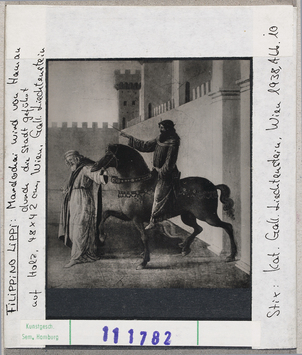 FILIPPINO LIPPI: Mardochai wird von Haman
durch die Stadt geführt
auf Holz, 48x42 cm, Wien, Gall. Liechtenstein
Stix: Kat. Gall. Liechtenstein, Wien 1938, Abb. 10
Kunstgesch.
Sem. Hamburg
111782